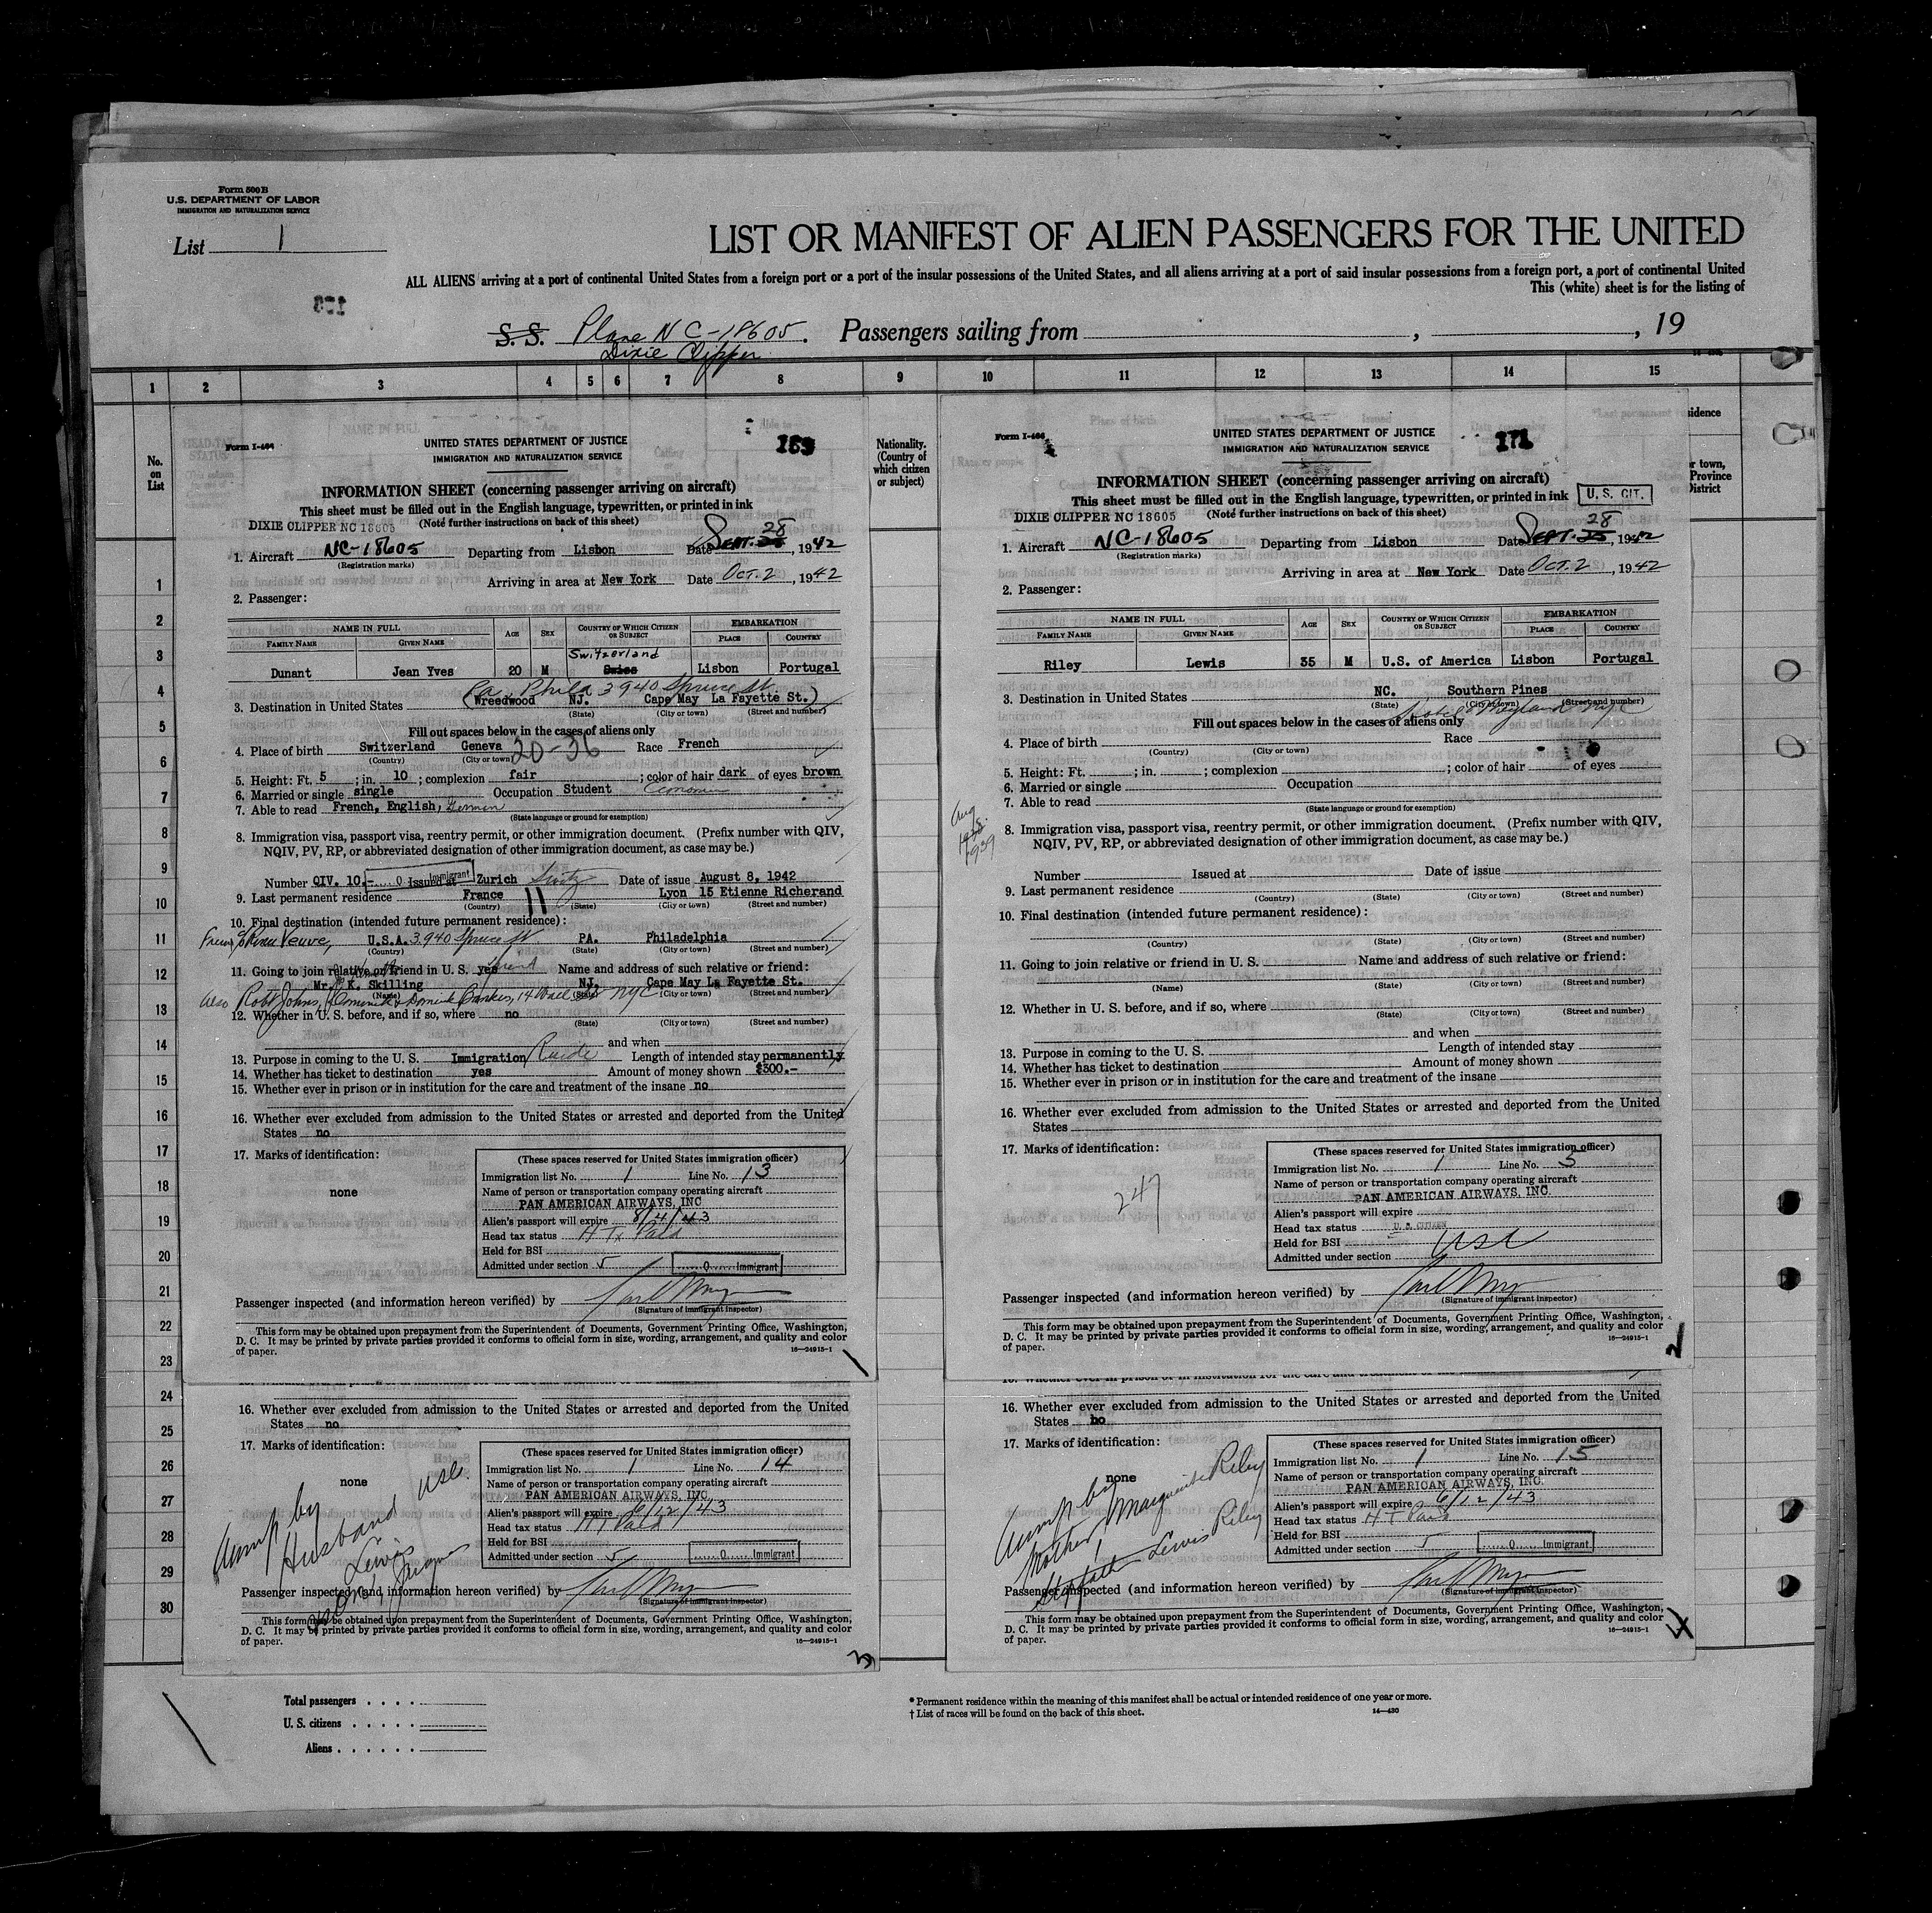 Form 500 B
U.S. DEPARTMENT OF LABOR
IMMIGRATION AND NATURALIZATION SERVICE
List 1
LIST OR MANIFEST OF ALIEN PASSENGERS FOR THE UNITED
ALL ALIENS arriving at a port of continental United States from a foreign port or a port of the insular possessions of the United States, and all aliens arriving at a port of said insular possessions from a foreign port, a port of continental United
This (white) sheet is for the listing of
S. S. Plane NC-18605. Passengers sailing from , , 19
Dixie Clipper
1 2 3 4 5 6 7 8 9 10 11 12 13 14 15
No. on List
Nationality. (Country of which citizen or subject)
1
2
3
4
5
6
7
8
9
10
11
12
13
14
15
16
17
18
19
20
21
22
23
24
25
26
27
28
29
30
Form I-466
UNITED STATES DEPARTMENT OF JUSTICE
IMMIGRATION AND NATURALIZATION SERVICE
INFORMATION SHEET (concerning passenger arriving on aircraft)
This sheet must be filled out in the English language, typewritten, or printed in ink
DIXIE CLIPPER NC 18605 (Note further instructions on back of this sheet)
28
1. Aircraft NC-18605 Departing from Lisbon Date SEPT. 25, 1942
(Registration marks)
Arriving in area at New York Date OCT. 2, 1942
2. Passenger:
NAME IN FULL AGE SEX COUNTRY OF WHICH CITIZEN OR SUBJECT EMBARKATION
FAMILY NAME GIVEN NAME PLACE COUNTRY
Switzerland
Dunant Jean Yves 20 M Swiss Lisbon Portugal
Pa. Phila 3940 Spruce St.
3. Destination in United States (Wreedwood NJ. Cape May La Fayette St.)
(State) (City or town) (Street and number)
Fill out spaces below in the cases of aliens only
4. Place of birth Switzerland Geneva 20-36 Race French
(Country) (City or town)
5. Height: Ft. 5; in. 10; complexion fair; color of hair dark of eyes brown
6. Married or single single Occupation Student
7. Able to read French, English, German
(State language or ground for exemption)
8. Immigration visa, passport visa, reentry permit, or other immigration document. (Prefix number with QIV,
NQIV, PV, RP, or abbreviated designation of other immigration document, as case may be.)
Number QIV. 10.- O Immigrant Issued at Zurich Switz Date of issue August 8, 1942
9. Last permanent residence France 11 Lyon 15 Etienne Richerand
(Country) (State) (City or town) (Street and number)
10. Final destination (intended future permanent residence):
U.S.A. 3940 Spruce St. PA. Philadelphia
(Country) (State) (City or town) (Street and number)
11. Going to join relative or friend in U. S. yes friend Name and address of such relative or friend:
Mr. K. Skilling NJ. Cape May La Fayette St.
(Name) (State) (City or town) (Street and number)
also Robt Johns, 14 Wall St NYC
12. Whether in U. S. before, and if so, where no
(State) (City or town) (Street and number)
and when
13. Purpose in coming to the U. S. Immigration/Reside Length of intended stay permanently
14. Whether has ticket to destination yes Amount of money shown $300.-
15. Whether ever in prison or in institution for the care and treatment of the insane no
16. Whether ever excluded from admission to the United States or arrested and deported from the United
States no
17. Marks of identification:
none
(These spaces reserved for United States immigration officer)
Immigration list No. 1 Line No. 13
Name of person or transportation company operating aircraft
PAN AMERICAN AIRWAYS, INC
Alien's passport will expire 8/4/43
Head tax status H Tx Paid
Held for BSI
Admitted under section 5 O Immigrant
Passenger inspected (and information hereon verified) by
(Signature of immigrant inspector)
This form may be obtained upon prepayment from the Superintendent of Documents, Government Printing Office, Washington,
D. C. It may be printed by private parties provided it conforms to official form in size, wording, arrangement, and quality and color
of paper. 16—24915-1
1
16. Whether ever excluded from admission to the United States or arrested and deported from the United
States no
17. Marks of identification:
none
Accomp by Husband Lewis USC
(These spaces reserved for United States immigration officer)
Immigration list No. 1 Line No. 14
Name of person or transportation company operating aircraft
PAN AMERICAN AIRWAYS, INC
Alien's passport will expire 6/12/43
Head tax status HT Paid
Held for BSI
Admitted under section 5 O Immigrant
Passenger inspected (and information hereon verified) by
(Signature of immigrant inspector)
This form may be obtained upon prepayment from the Superintendent of Documents, Government Printing Office, Washington,
D. C. It may be printed by private parties provided it conforms to official form in size, wording, arrangement, and quality and color
of paper. 16—24915-1
3
Form I-466
UNITED STATES DEPARTMENT OF JUSTICE
IMMIGRATION AND NATURALIZATION SERVICE
171
INFORMATION SHEET (concerning passenger arriving on aircraft)
This sheet must be filled out in the English language, typewritten, or printed in ink
U. S. CIT.
DIXIE CLIPPER NC 18605 (Note further instructions on back of this sheet)
28
1. Aircraft NC-18605 Departing from Lisbon Date SEPT. 25, 1942
(Registration marks)
Arriving in area at New York Date OCT. 2, 1942
2. Passenger:
NAME IN FULL AGE SEX COUNTRY OF WHICH CITIZEN OR SUBJECT EMBARKATION
FAMILY NAME GIVEN NAME PLACE COUNTRY
Riley Lewis 35 M U.S. of America Lisbon Portugal
3. Destination in United States NC. Southern Pines
(State) (City or town) (Street and number)
Fill out spaces below in the cases of aliens only
4. Place of birth Race
(Country) (City or town)
5. Height: Ft. ; in. ; complexion ; color of hair of eyes
6. Married or single Occupation
7. Able to read
(State language or ground for exemption)
Aug 1939
8. Immigration visa, passport visa, reentry permit, or other immigration document. (Prefix number with QIV,
NQIV, PV, RP, or abbreviated designation of other immigration document, as case may be.)
Number Issued at Date of issue
9. Last permanent residence
(Country) (State) (City or town) (Street and number)
10. Final destination (intended future permanent residence):
(Country) (State) (City or town) (Street and number)
11. Going to join relative or friend in U. S. Name and address of such relative or friend:
(Name) (State) (City or town) (Street and number)
12. Whether in U. S. before, and if so, where
(State) (City or town) (Street and number)
and when
13. Purpose in coming to the U. S. Length of intended stay
14. Whether has ticket to destination Amount of money shown
15. Whether ever in prison or in institution for the care and treatment of the insane
16. Whether ever excluded from admission to the United States or arrested and deported from the United
States
17. Marks of identification:
247
(These spaces reserved for United States immigration officer)
Immigration list No. 1 Line No. 5
Name of person or transportation company operating aircraft
PAN AMERICAN AIRWAYS, INC.
Alien's passport will expire
Head tax status U. S. CITIZEN
Held for BSI USC
Admitted under section
Passenger inspected (and information hereon verified) by
(Signature of immigrant inspector)
This form may be obtained upon prepayment from the Superintendent of Documents, Government Printing Office, Washington,
D. C. It may be printed by private parties provided it conforms to official form in size, wording, arrangement, and quality and color
of paper. 16—24915-1
2
16. Whether ever excluded from admission to the United States or arrested and deported from the United
States no
17. Marks of identification:
none
Accomp by Mother, Marguerite Riley
Stepfath Lewis Riley
(These spaces reserved for United States immigration officer)
Immigration list No. 1 Line No. 15
Name of person or transportation company operating aircraft
PAN AMERICAN AIRWAYS, INC.
Alien's passport will expire 6/12/43
Head tax status HT Paid
Held for BSI
Admitted under section 5 O Immigrant
Passenger inspected (and information hereon verified) by
(Signature of immigrant inspector)
This form may be obtained upon prepayment from the Superintendent of Documents, Government Printing Office, Washington,
D. C. It may be printed by private parties provided it conforms to official form in size, wording, arrangement, and quality and color
of paper. 16—24915-1
Total passengers
U. S. citizens
Aliens
* Permanent residence within the meaning of this manifest shall be actual or intended residence of one year or more.
† List of races will be found on the back of this sheet. 14—430